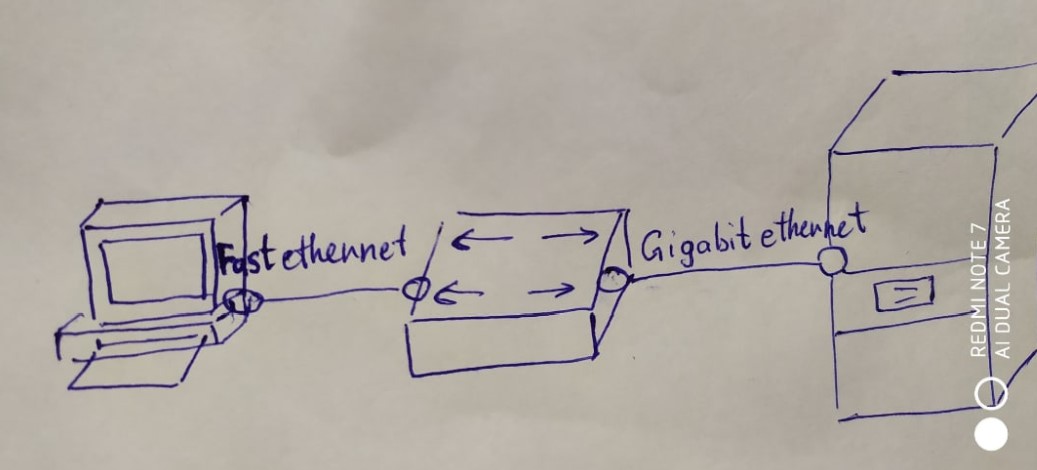 Fast ethennet
Gigabit ethennet
REDMI NOTE 7
AI DUAL CAMERA